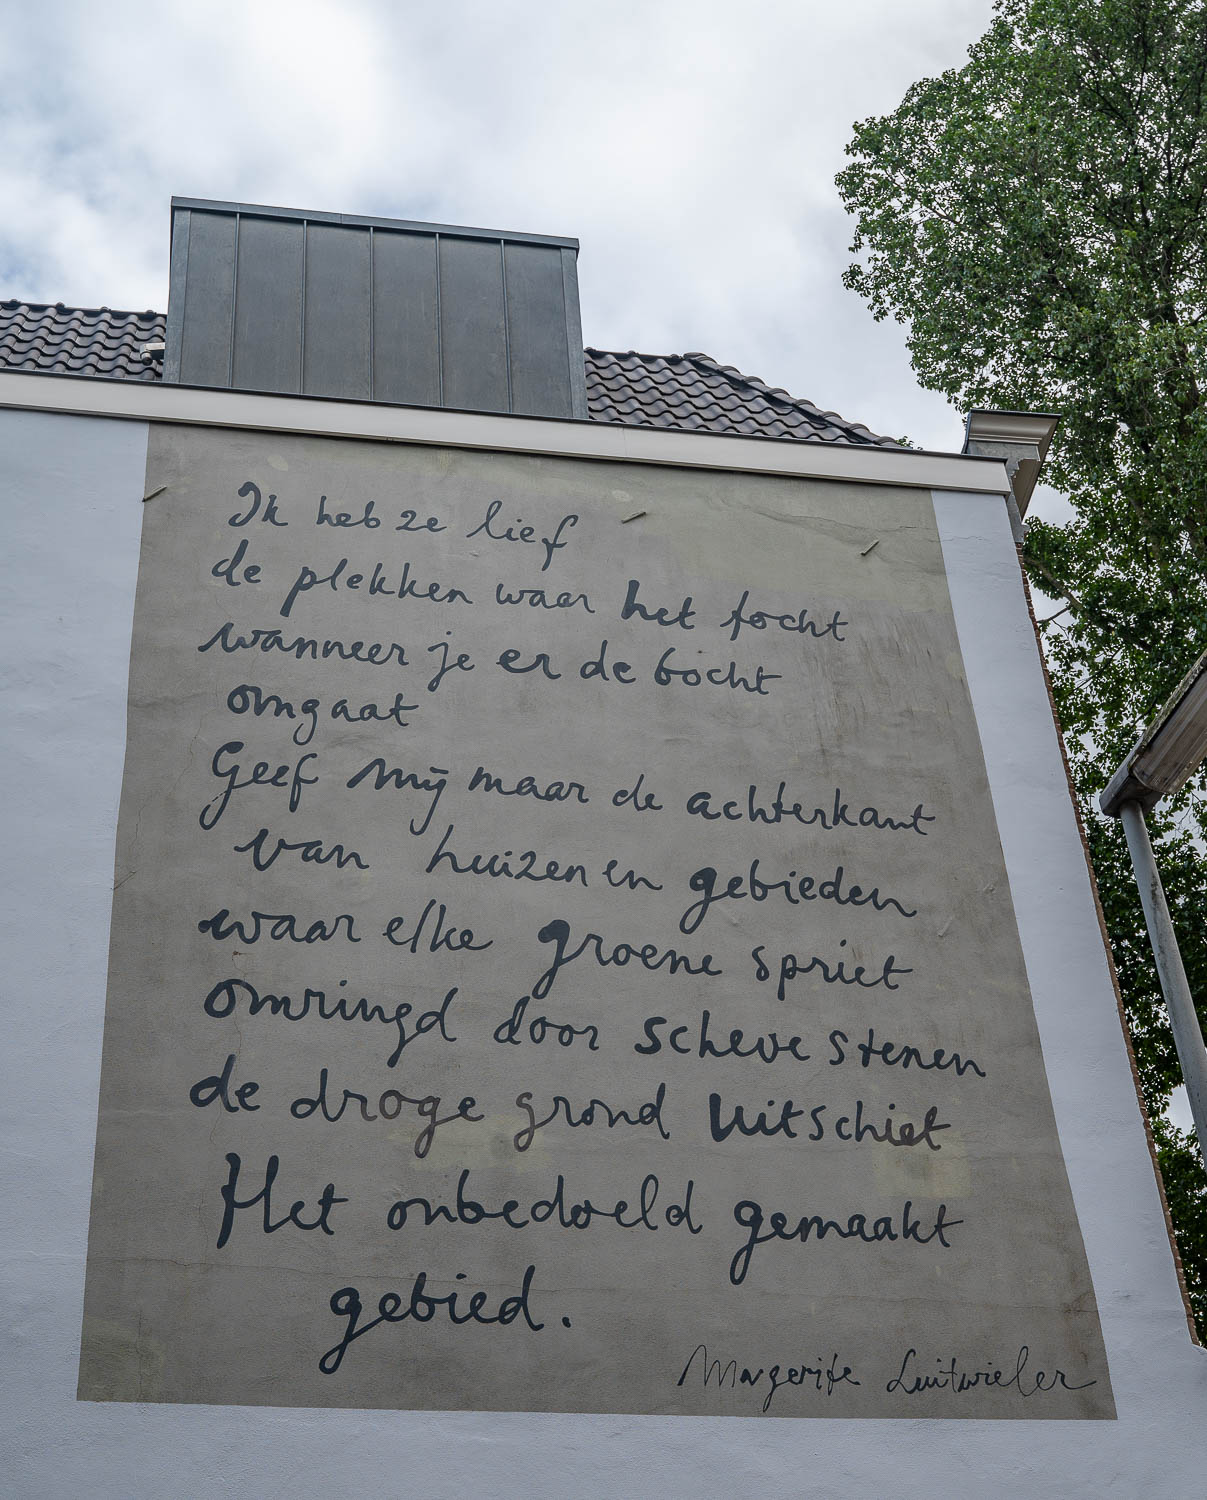 Ik heb ze lief
de plekken waar het tocht
wanneer je er de bocht
omgaat
Geef mij maar de achterkant
van huizen en gebieden
waar elke groene spriet
omringd door scheve stenen
de droge grond uitschiet
Het onbedoeld gemaakt
gebied.
Margerite Luitwieler